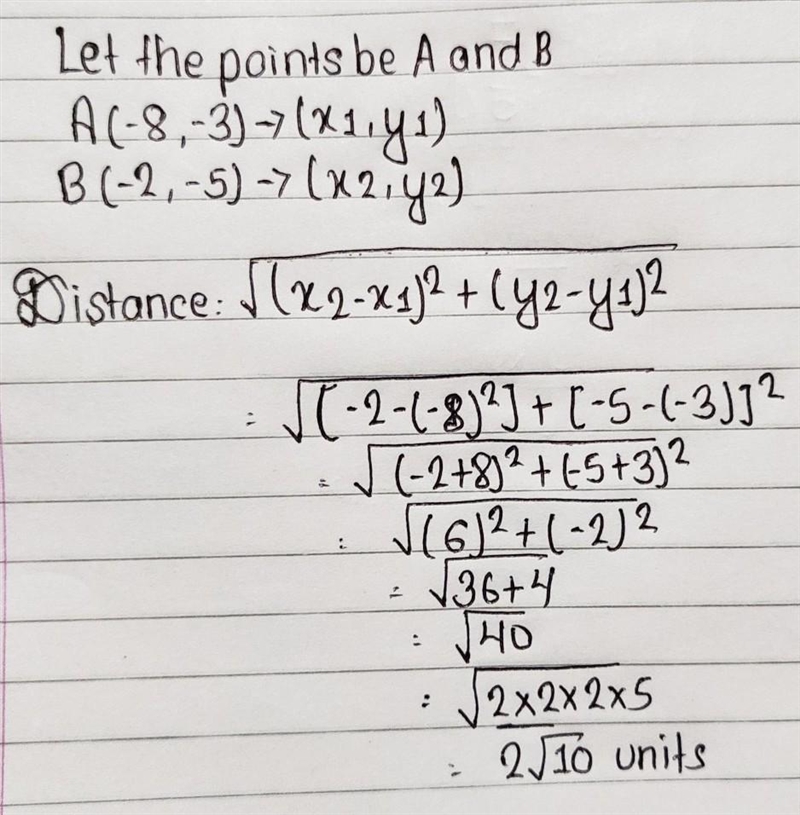 Let the points be A and B
A(-8,-3)→(x1,y1)
B(-2,-5)→(x2,y2)
Distance: √(x2-x1)²+(y2-y1)²
= √[-2-(-8)²]+[-5-(-3)]²
= √(-2+8)²+(-5+3)²
= √(6)²+(-2)²
= √36+4
= √40
= √2×2×2×5
= 2√10 units